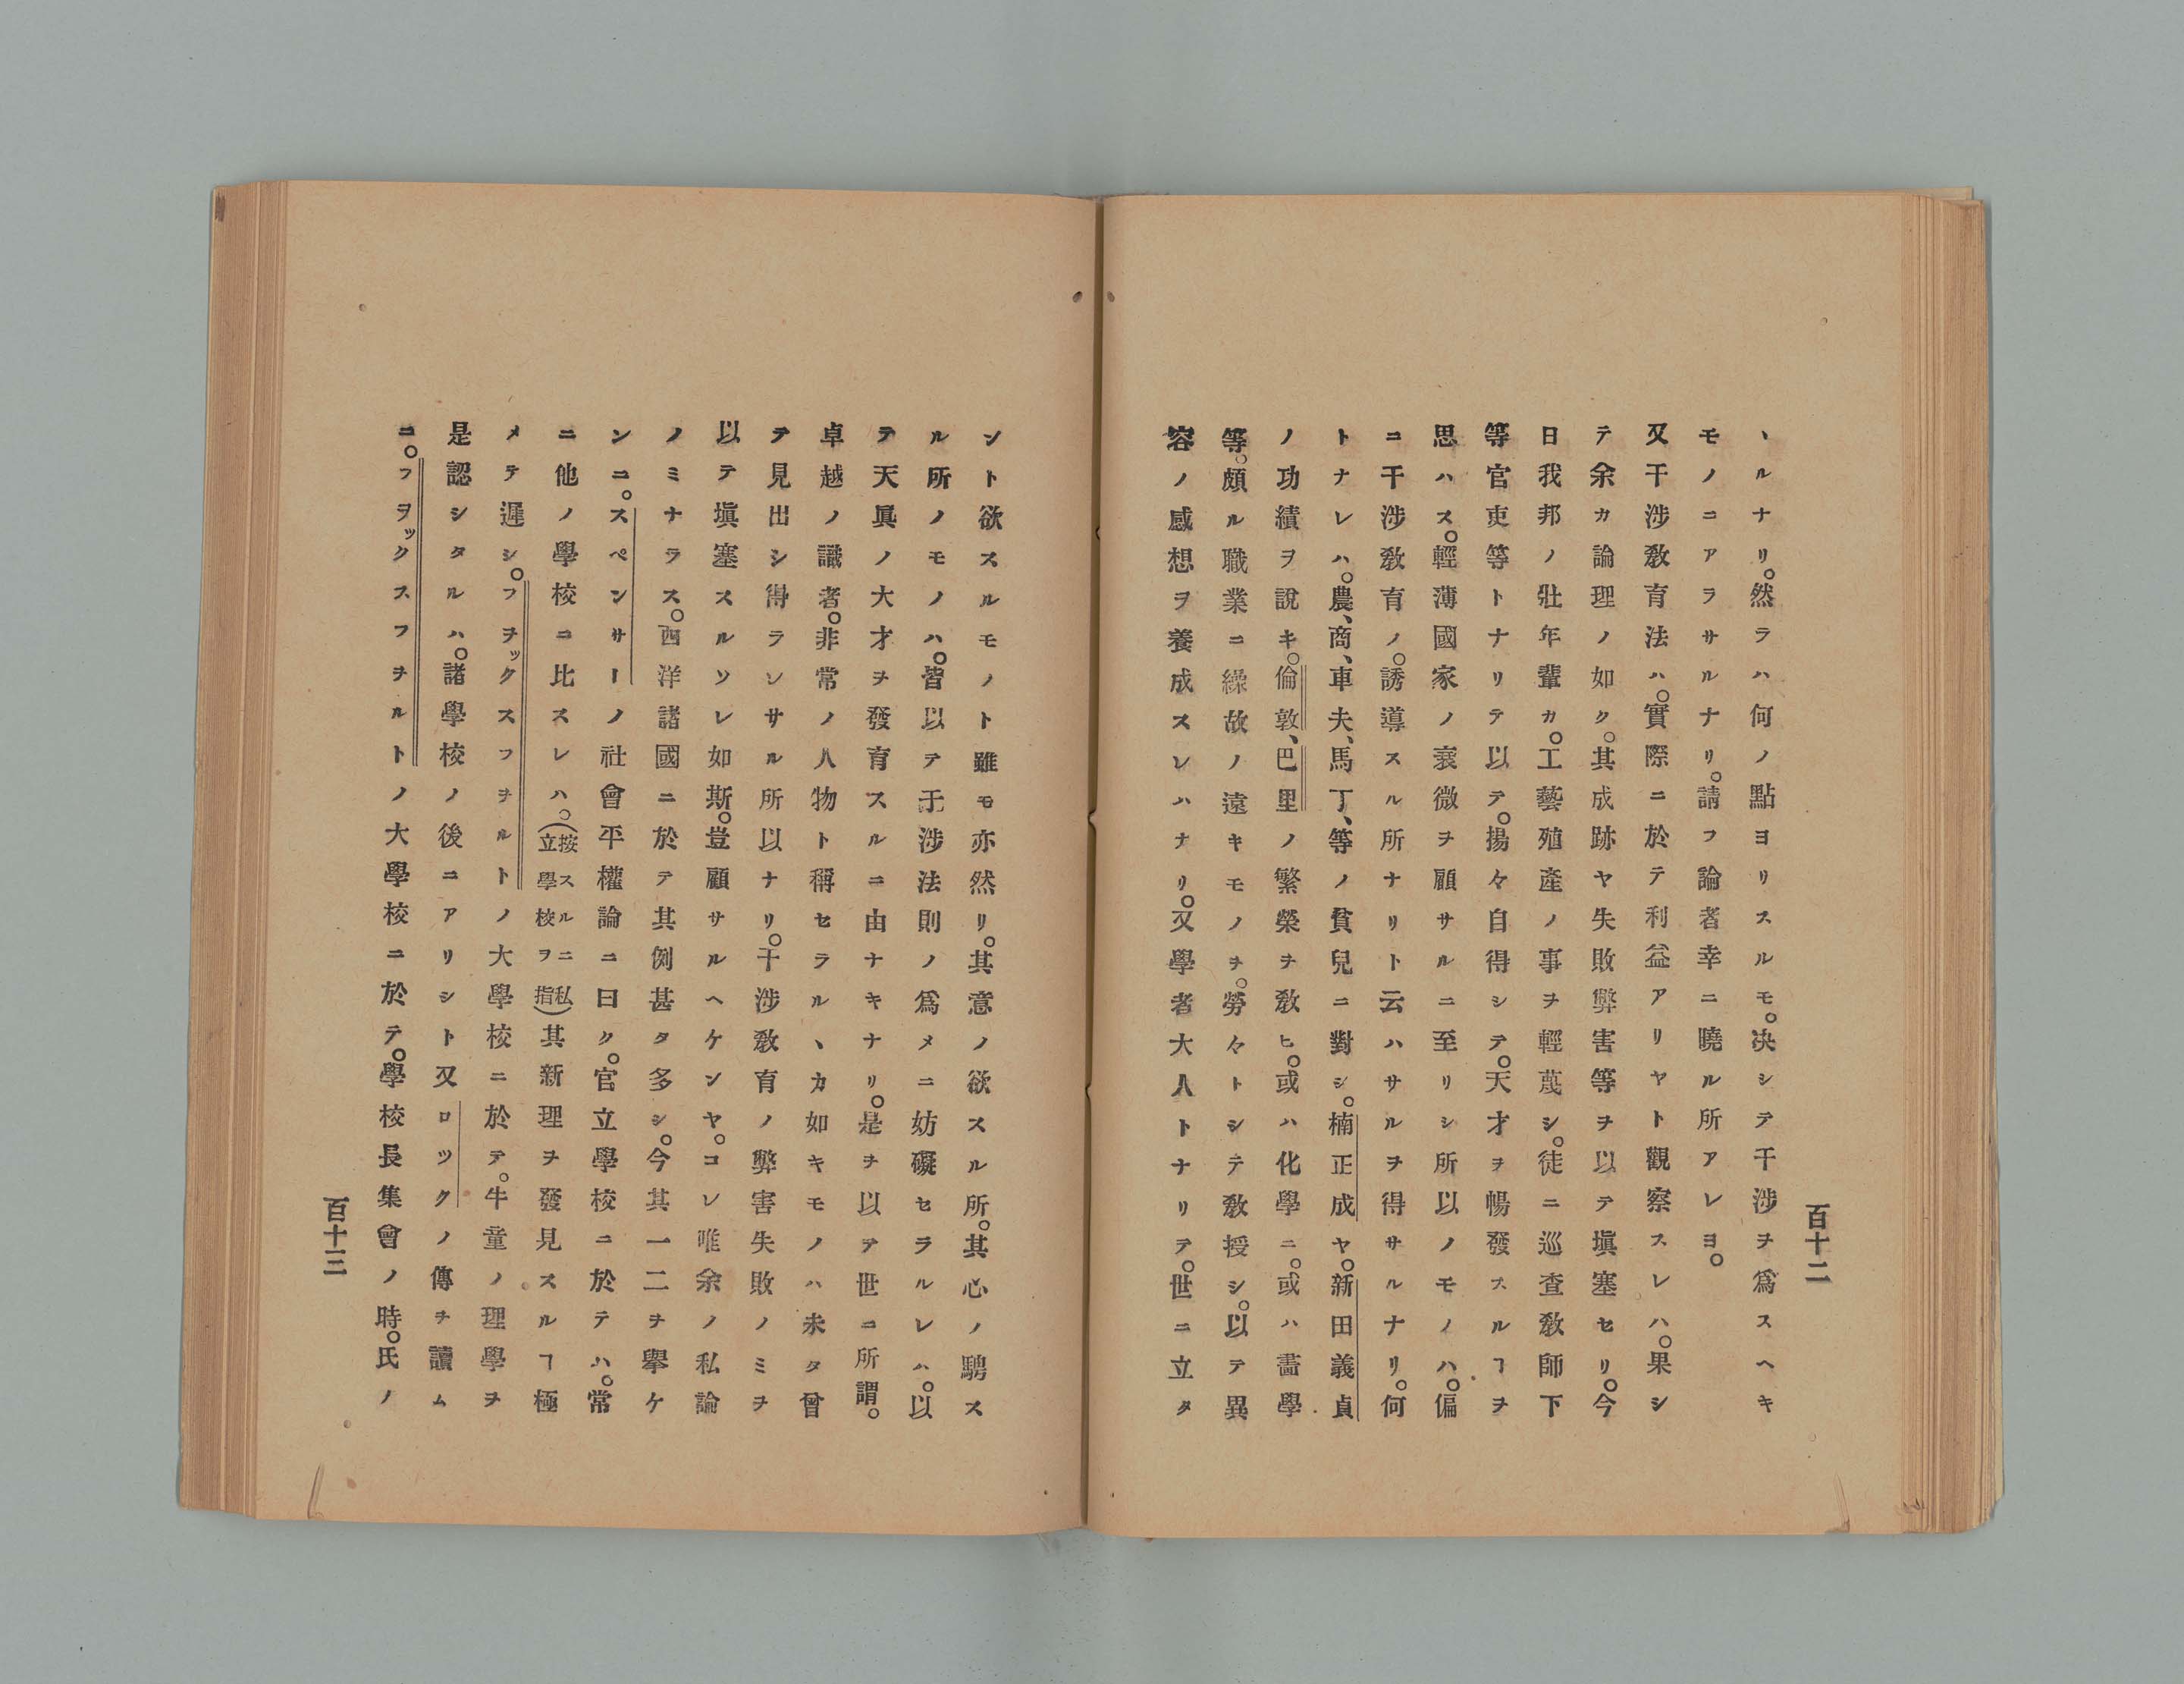 百十二
ヽルナリ。然ラハ何ノ點ヨリスルモ。决シテ干涉ヲ爲スヘキ
モノニアラサルナリ。請フ論者幸ニ曉ル所アレヨ。
又干涉敎育法ハ。實際ニ於テ利益アリヤト觀察スレハ。果シ
テ余カ論理ノ如ク。其成跡ヤ失敗弊害等ヲ以テ塡塞セリ。今
日我邦ノ壯年輩カ。工藝殖產ノ事ヲ輕蔑シ。徒ニ巡査敎師下
等官吏等トナリテ以テ。揚々自得シテ。天才ヲ暢發スルヿヲ
思ハス。輕薄國家ノ衰微ヲ顧サルニ至リシ所以ノモノハ。偏
ニ干涉敎育ノ。誘導スル所ナリト云ハサルヲ得サルナリ。何
トナレハ。農、商、車夫、馬丁、等ノ貧兒ニ對シ。楠正成ヤ。新田義貞
ノ功績ヲ說キ。倫敦、巴里ノ繁榮ヲ敎ヒ。或ハ化學ニ。或ハ畵學
等。頗ル職業ニ緣故ノ遠キモノヲ。勞々トシテ敎授シ。以テ異
容ノ感想ヲ養成スレハナリ。又學者大人トナリテ。世ニ立タ
ント欲スルモノト雖モ亦然リ。其意ノ欲スル所。其心ノ騁ス
ル所ノモノハ。皆以テ干涉法則ノ爲メニ妨礙セラルレハ。以
テ天眞ノ大才ヲ發育スルニ由ナキナリ。是ヲ以テ世ニ所謂。
卓越ノ識者。非常ノ人物ト稱セラルヽカ如キモノハ未タ曾
テ見出シ得ラレサル所以ナリ。干涉敎育ノ弊害失敗ノミヲ
以テ塡塞スルソレ如斯。豈顧サルヘケンヤ。コレ唯余ノ私論
ノミナラス。西洋諸國ニ於テ其例甚タ多シ。今其一二ヲ擧ケ
ンニ。スペンサーノ社會平權論ニ曰ク。官立學校ニ於テハ。常
ニ他ノ學校ニ比スレハ。(按スルニ私立學校ヲ指)其新理ヲ發見スルヿ極
メテ遲シ。フヲックスフヲルトノ大學校ニ於テ。牛童ノ理學ヲ
是認シタルハ。諸學校ノ後ニアリシト又ロツクノ傳ヲ讀ム
ニ。フヲックスフヲルトノ大學校ニ於テ。學校長集會ノ時。氏ノ
百十三